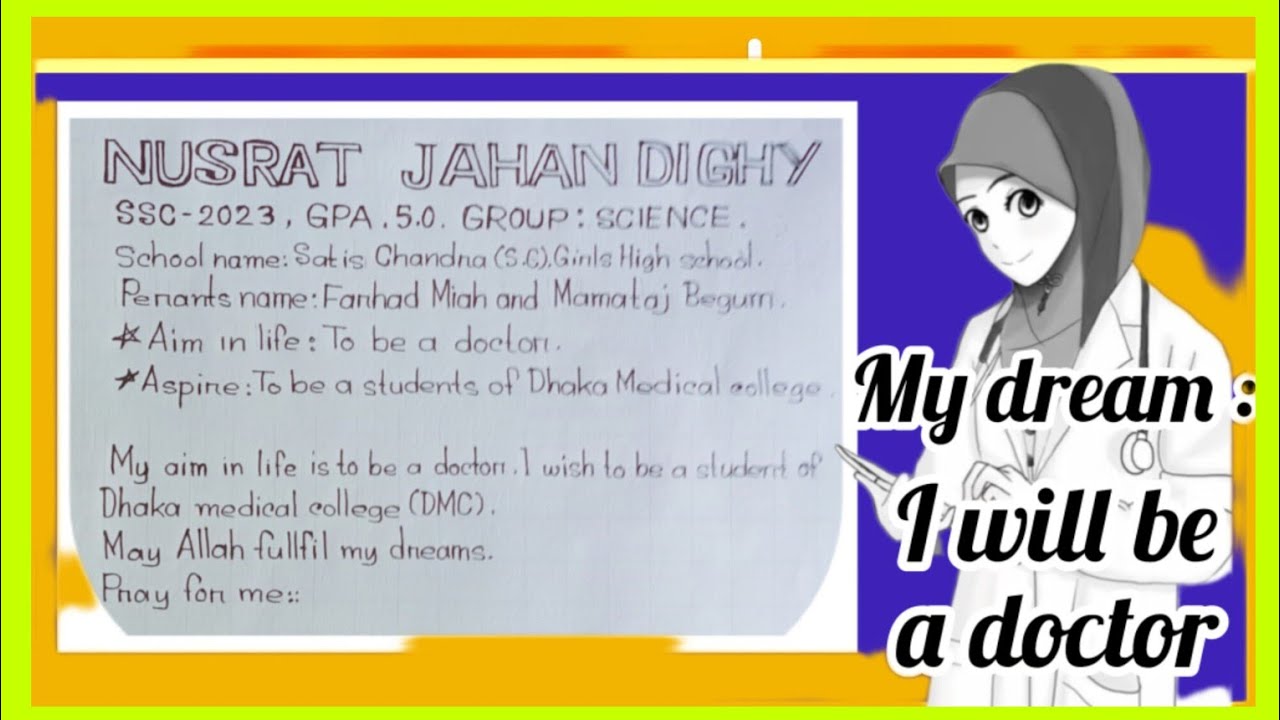 NUSRAT JAHAN DIGHY
SSC-2023, GPA.5.0. GROUP: SCIENCE.
School name: Satis Chandra (S.C), Girls High school.
Perants name: Farhad Miah and Mamataj Begum.
*Aim in life: To be a doctor.
*Aspire: To be a students of Dhaka Medical college.
My aim in life is to be a doctor. I wish to be a student of
Dhaka medical college (DMC).
May Allah fullfil my dreams.
Pray for me::
My dream :
I will be
a doctor